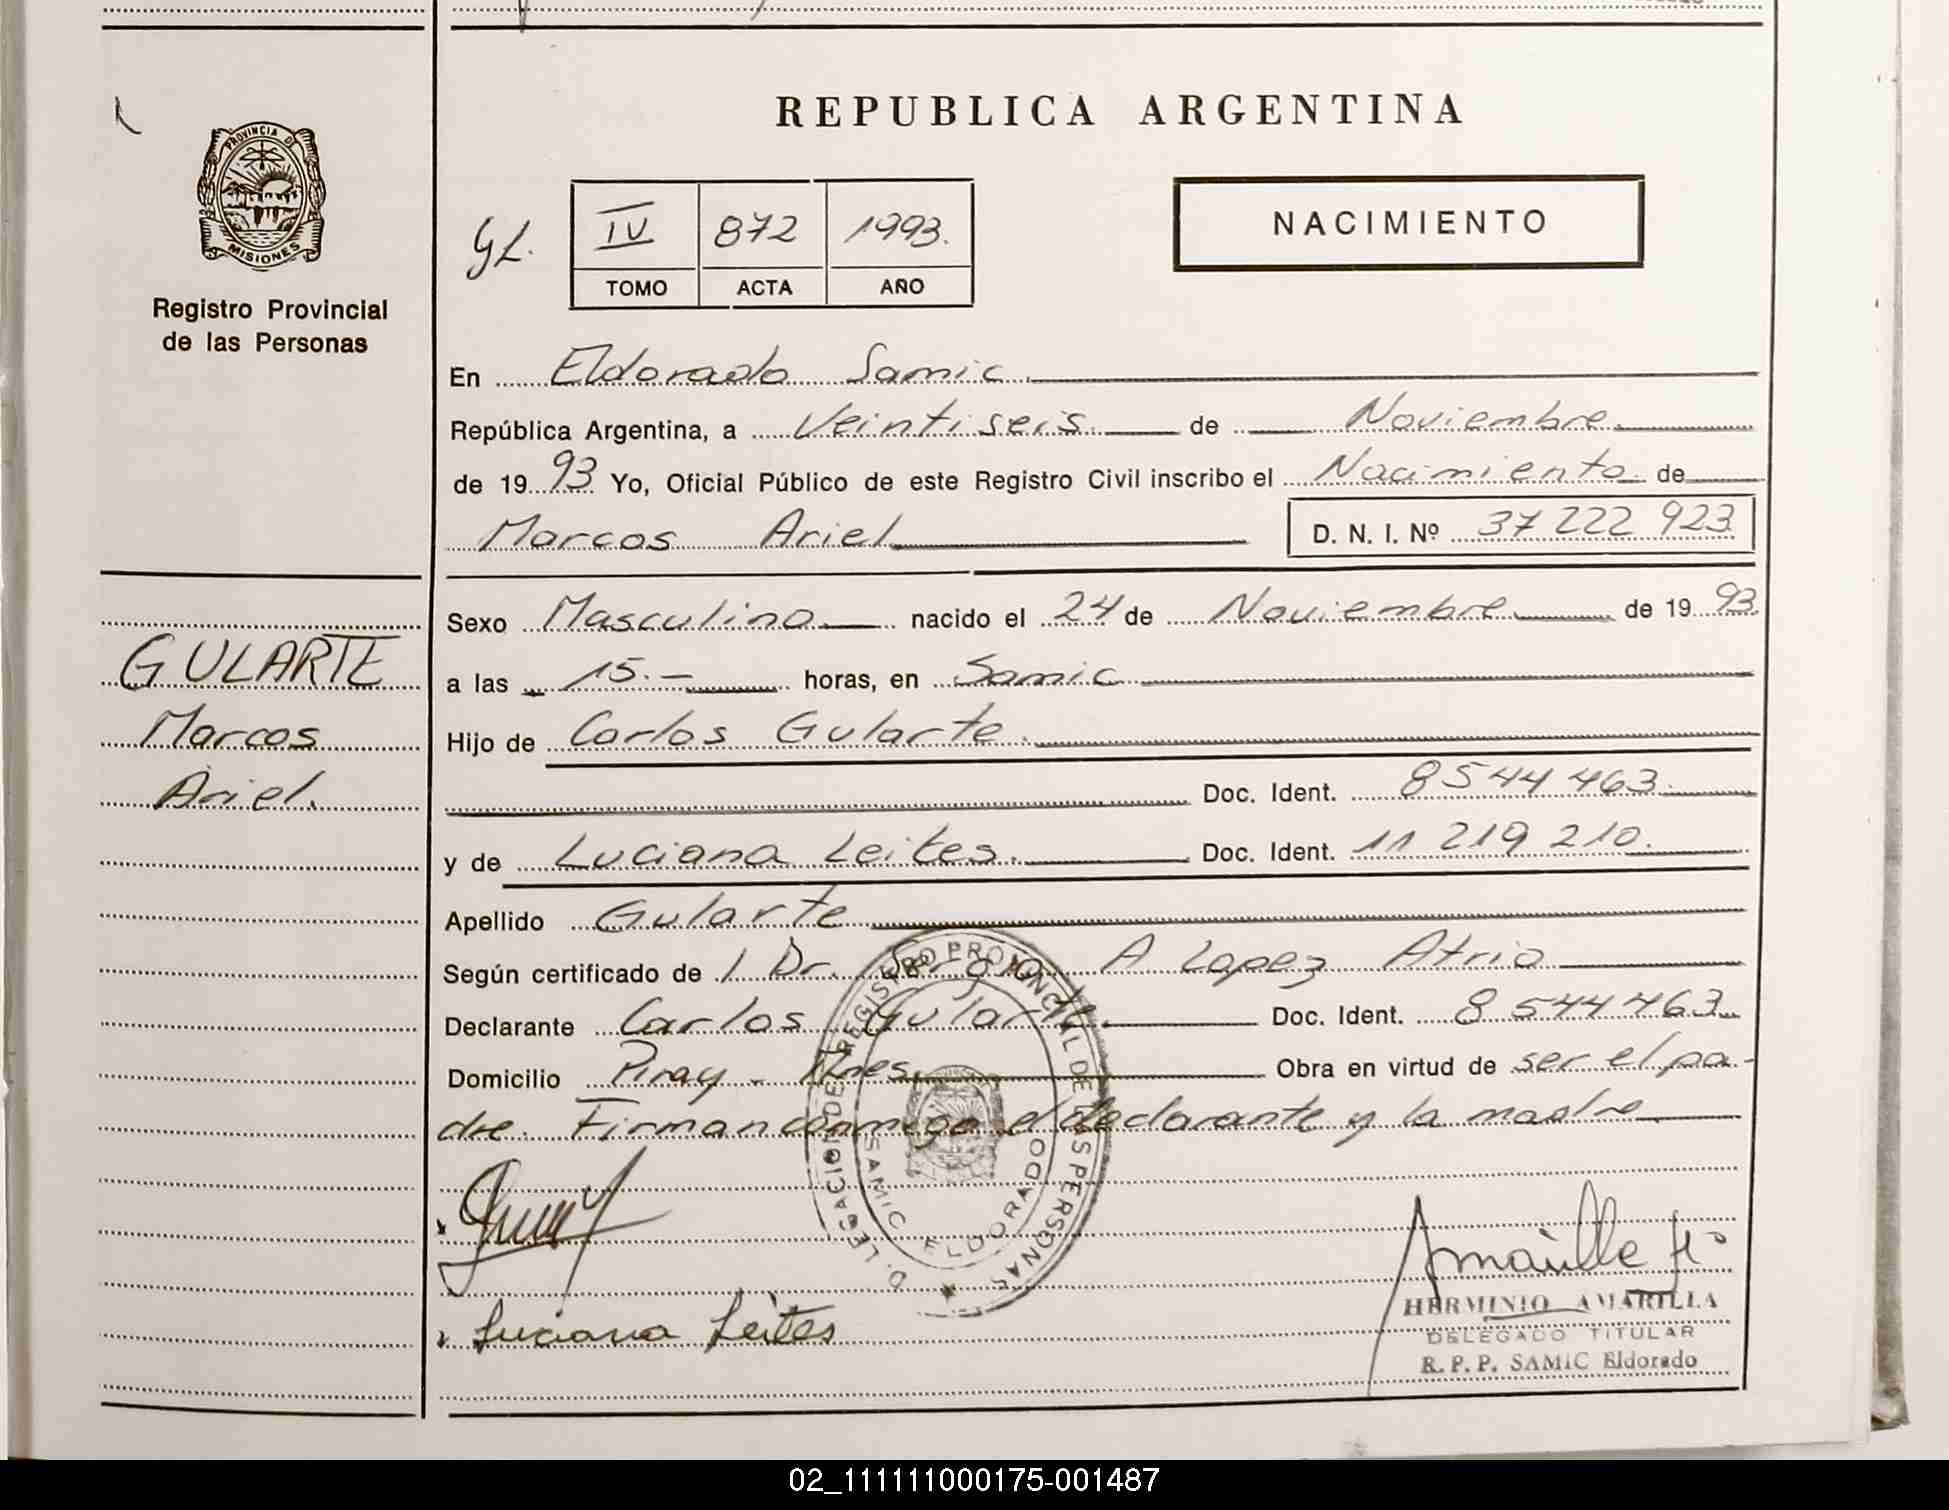 REPUBLICA ARGENTINA
PROVINCIA DE
MISIONES
Registro Provincial
de las Personas
GL.
IV 872 1993.
TOMO ACTA AÑO
NACIMIENTO
En Eldorado Samic.
República Argentina, a Veintiseis. de Noviembre.
de 1993 Yo, Oficial Público de este Registro Civil inscribo el Nacimiento de
Marcos Ariel D. N. I. Nº 37 222 923
GULARTE
Marcos
Ariel.
Sexo Masculino nacido el 24 de Noviembre de 1993.
a las 15.- horas, en Samic
Hijo de Carlos Gularte.
Doc. Ident. 8544463.
y de Luciana Leites. Doc. Ident. 11 219 210.
Apellido Gularte
Según certificado de / Dr. Sergio A Lopez Atrio
Declarante Carlos Gularte. Doc. Ident. 8544463.
Domicilio Piray - Mnes. Obra en virtud de ser el pa-
dre. Firman conmigo el declarante y la madre
DELEGACION DEL REGISTRO PROVINCIAL DE LAS PERSONAS
SAMIC ELDORADO
Luciana Leites
Amarilla Hº
HERMINIO AMARILLA
DELEGADO TITULAR
R. P. P. SAMIC Eldorado
02_111111000175-001487